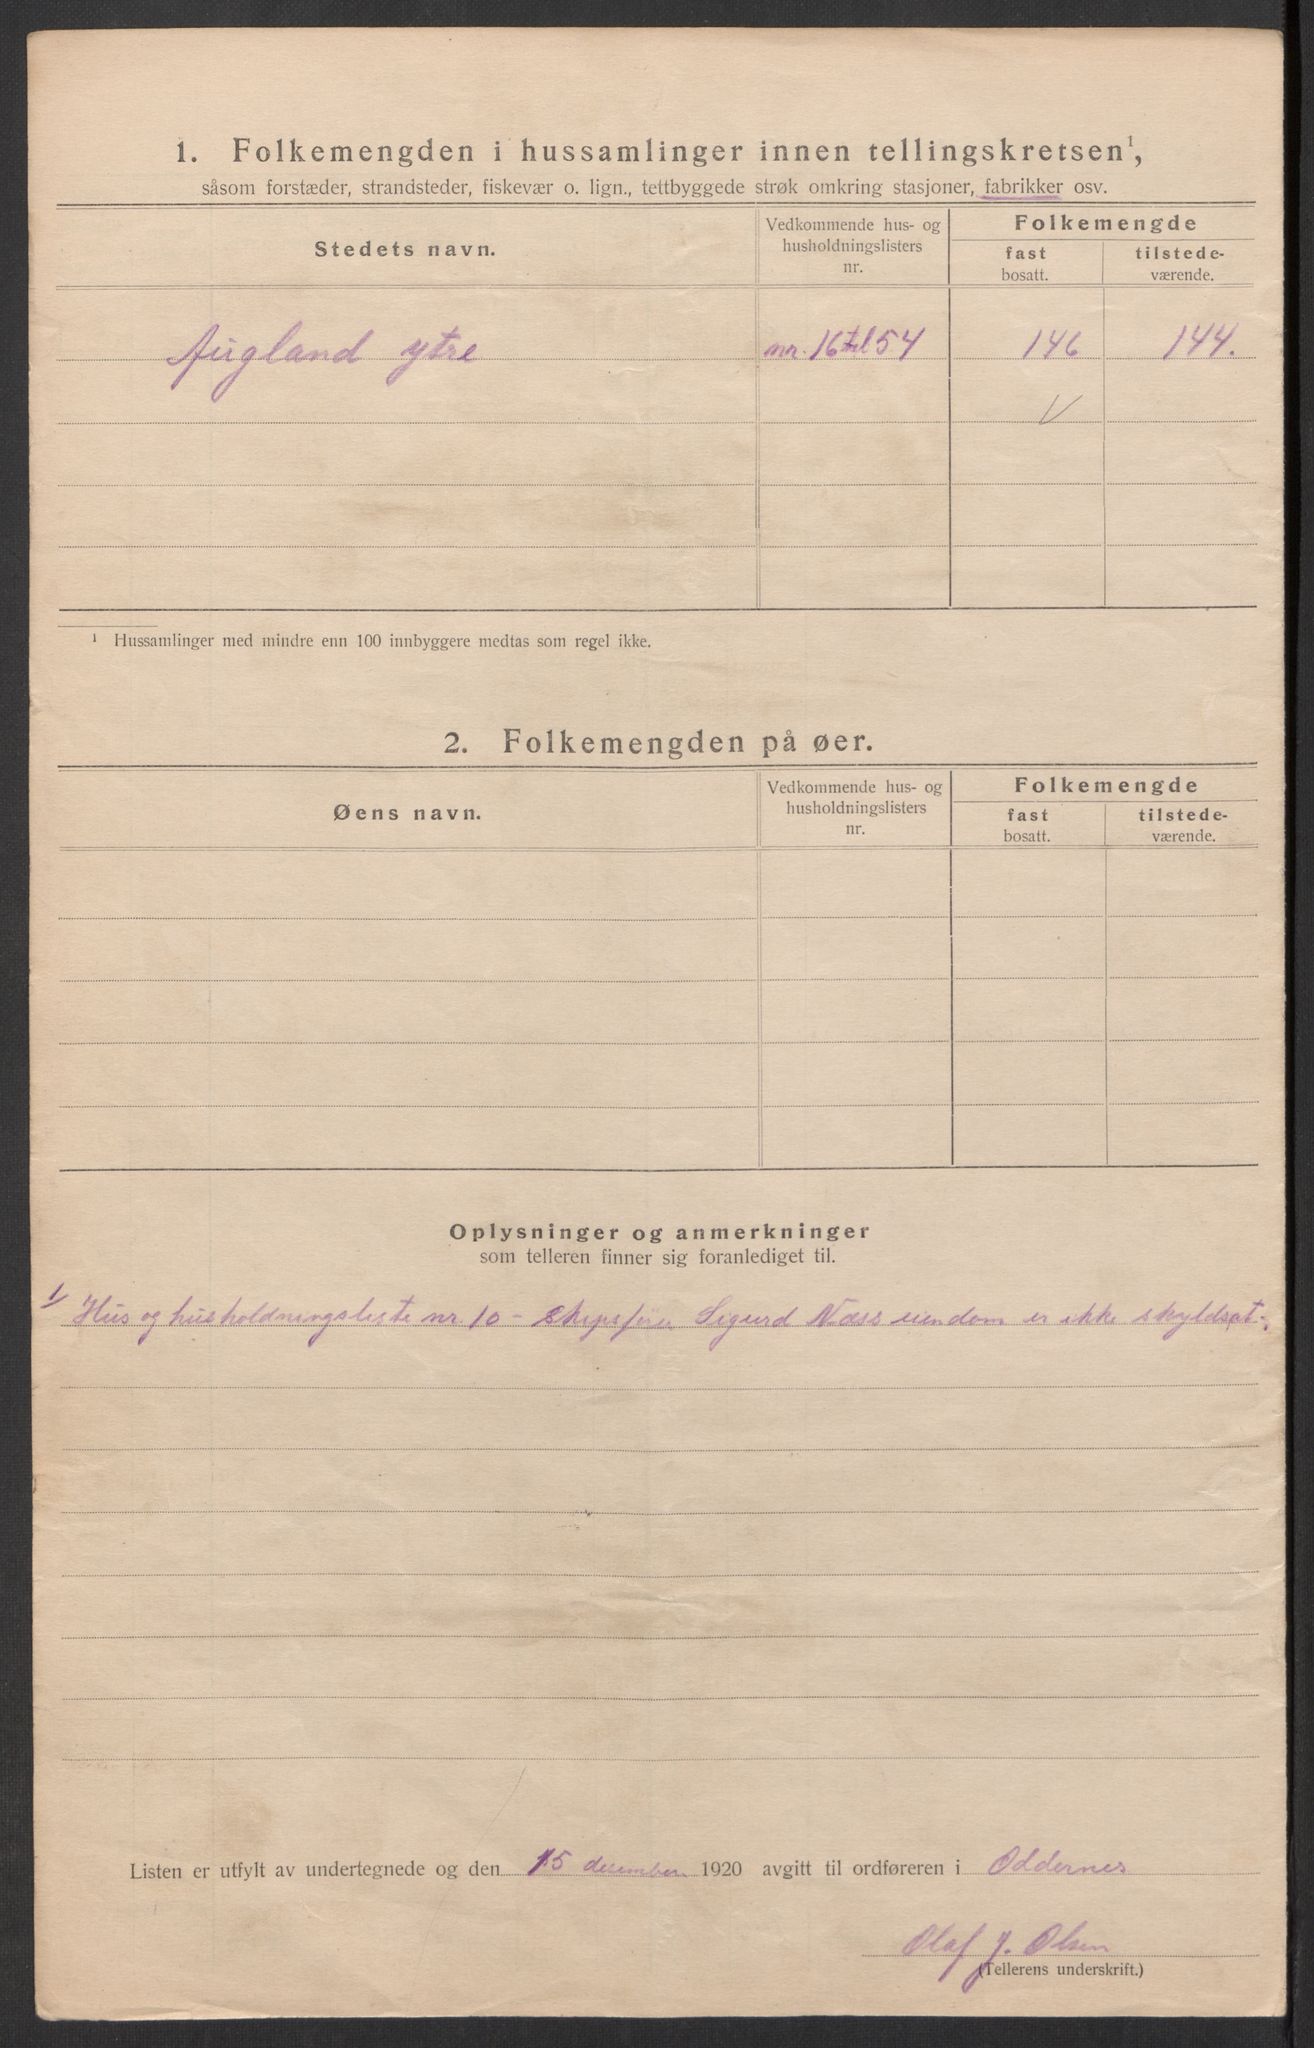 1. Folkemengden i hussamlinger innen tellingskretsen¹,
såsom forstæder, strandsteder, fiskevær o. lign., tettbyggede strøk omkring stasjoner, fabrikker osv.
Stedets navn.
Vedkommende hus- og
husholdningslisters
nr.
Folkemengde
fast
bosatt.
tilstede-
værende.
Augland ytre nr. 16 til 54 146 144.
¹ Hussamlinger med mindre enn 100 innbyggere medtas som regel ikke.
2. Folkemengden på øer.
Øens navn.
Vedkommende hus- og
husholdningslisters
nr.
Folkemengde
fast
bosatt.
tilstede-
værende.
Oplysninger og anmerkninger
som telleren finner sig foranlediget til.
1/ Hus og husholdningsliste nr. 10 - skipsfører Sigurd Næss eiendom er ikke skyldsat.
Listen er utfylt av undertegnede og den 15 desember 1920 avgitt til ordføreren i Oddernes
Olaf J. Olsen
(Tellerens underskrift.)